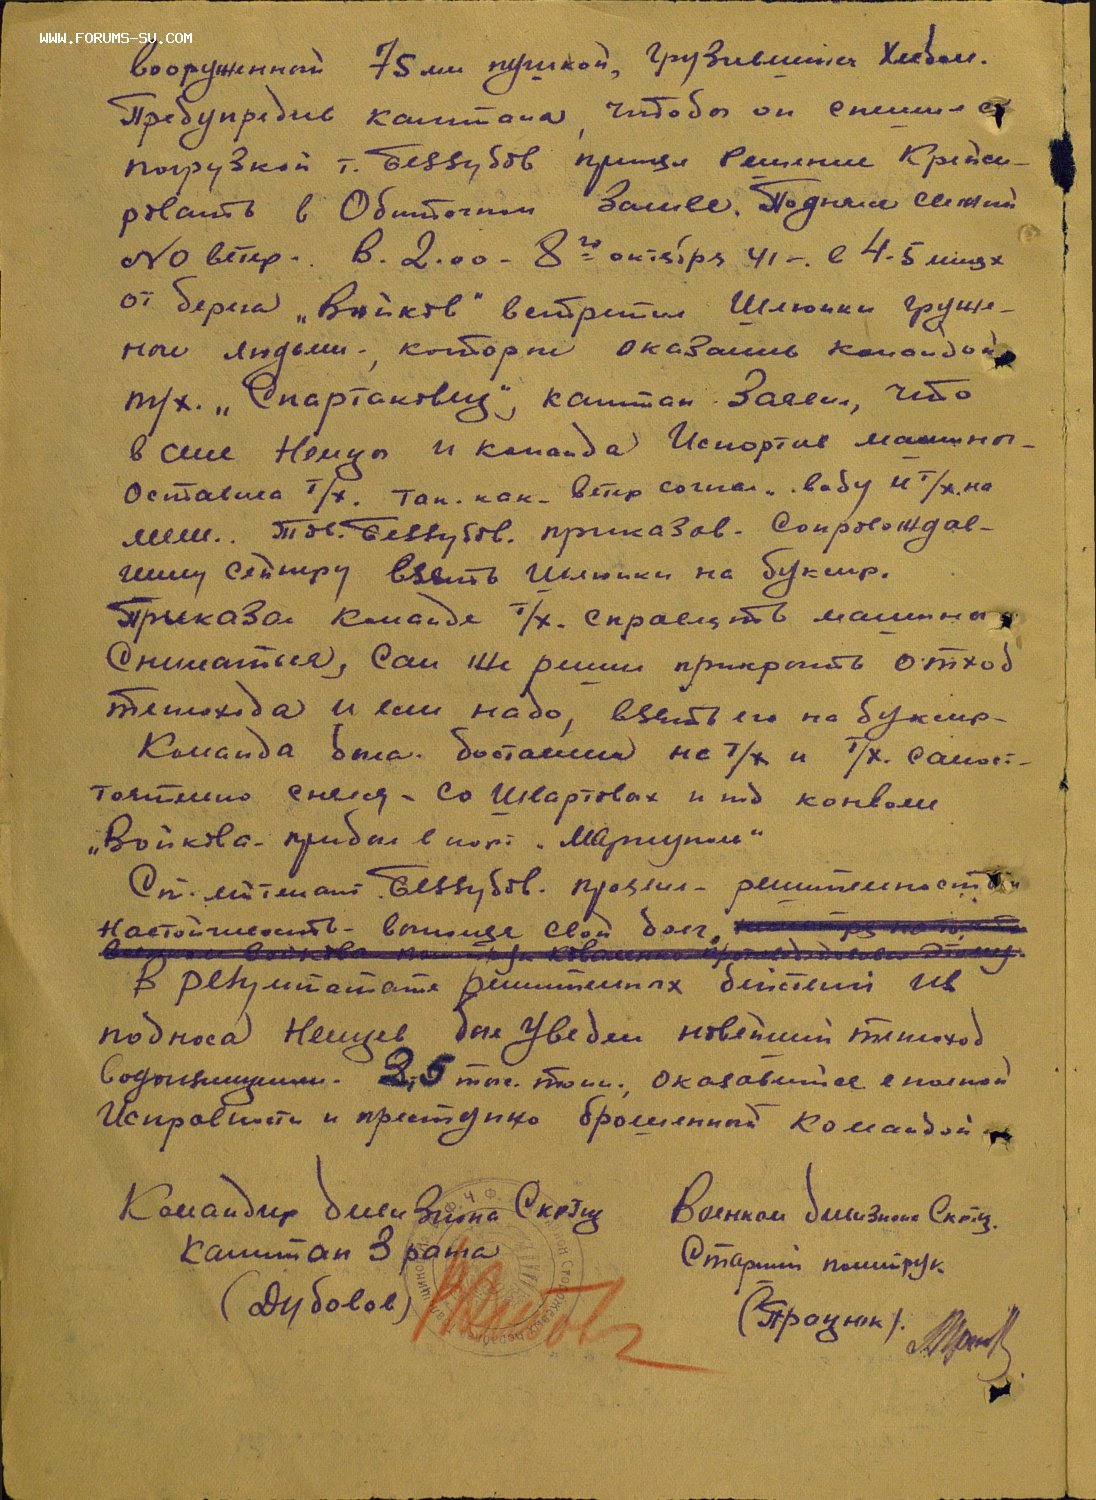 WWW.FORUMS-SU.COM
вооруженный 75 мм пушкой, грузившийся хлебом.
Предупредив капитана, чтобы он спешил с
погрузкой т. Беззубов принял решение крейси-
ровать в Обиточном заливе. Поднялся свежий
NO ветер. В 2.00 - 8го октября 41 г. в 4-5 милях
от берега „Войков" встретил шлюпки гружен-
ные людьми, которые оказались командой
т/х. „Спартаковец", капитан заявил, что
в селе немцы и команда испортив машины
оставила т/х. Так как ветер согнал воду и т/х. на
мели. Тов. Беззубов. приказав сопровождав-
шему сейнеру взять шлюпки на буксир.
Приказал команде т/х. справлять машины
сниматься, сам же решил прикрыть отход
теплохода и если надо, взять его на буксир-
Команда была доставлена на т/х и т/х. самост-
тоятельно снялся со швартовых и под конвоем
„Войкова прибыл в порт „Мариуполь"
Ст. лейтенант Беззубов. проявил решительность и
настойчивость выполняя свой долг,
В результатате решительных действий из
под носа немцев был уведен новейший теплоход
водоизмещением 3,5 тыс. тонн, оказавшийся в полной
исправности и преступно брошенный командой
Командир дивизиона Скртщ
Капитан 3 ранга
(Дубовов)
Военком дивизиона Скртщ.
Старший политрук
(Працюк).